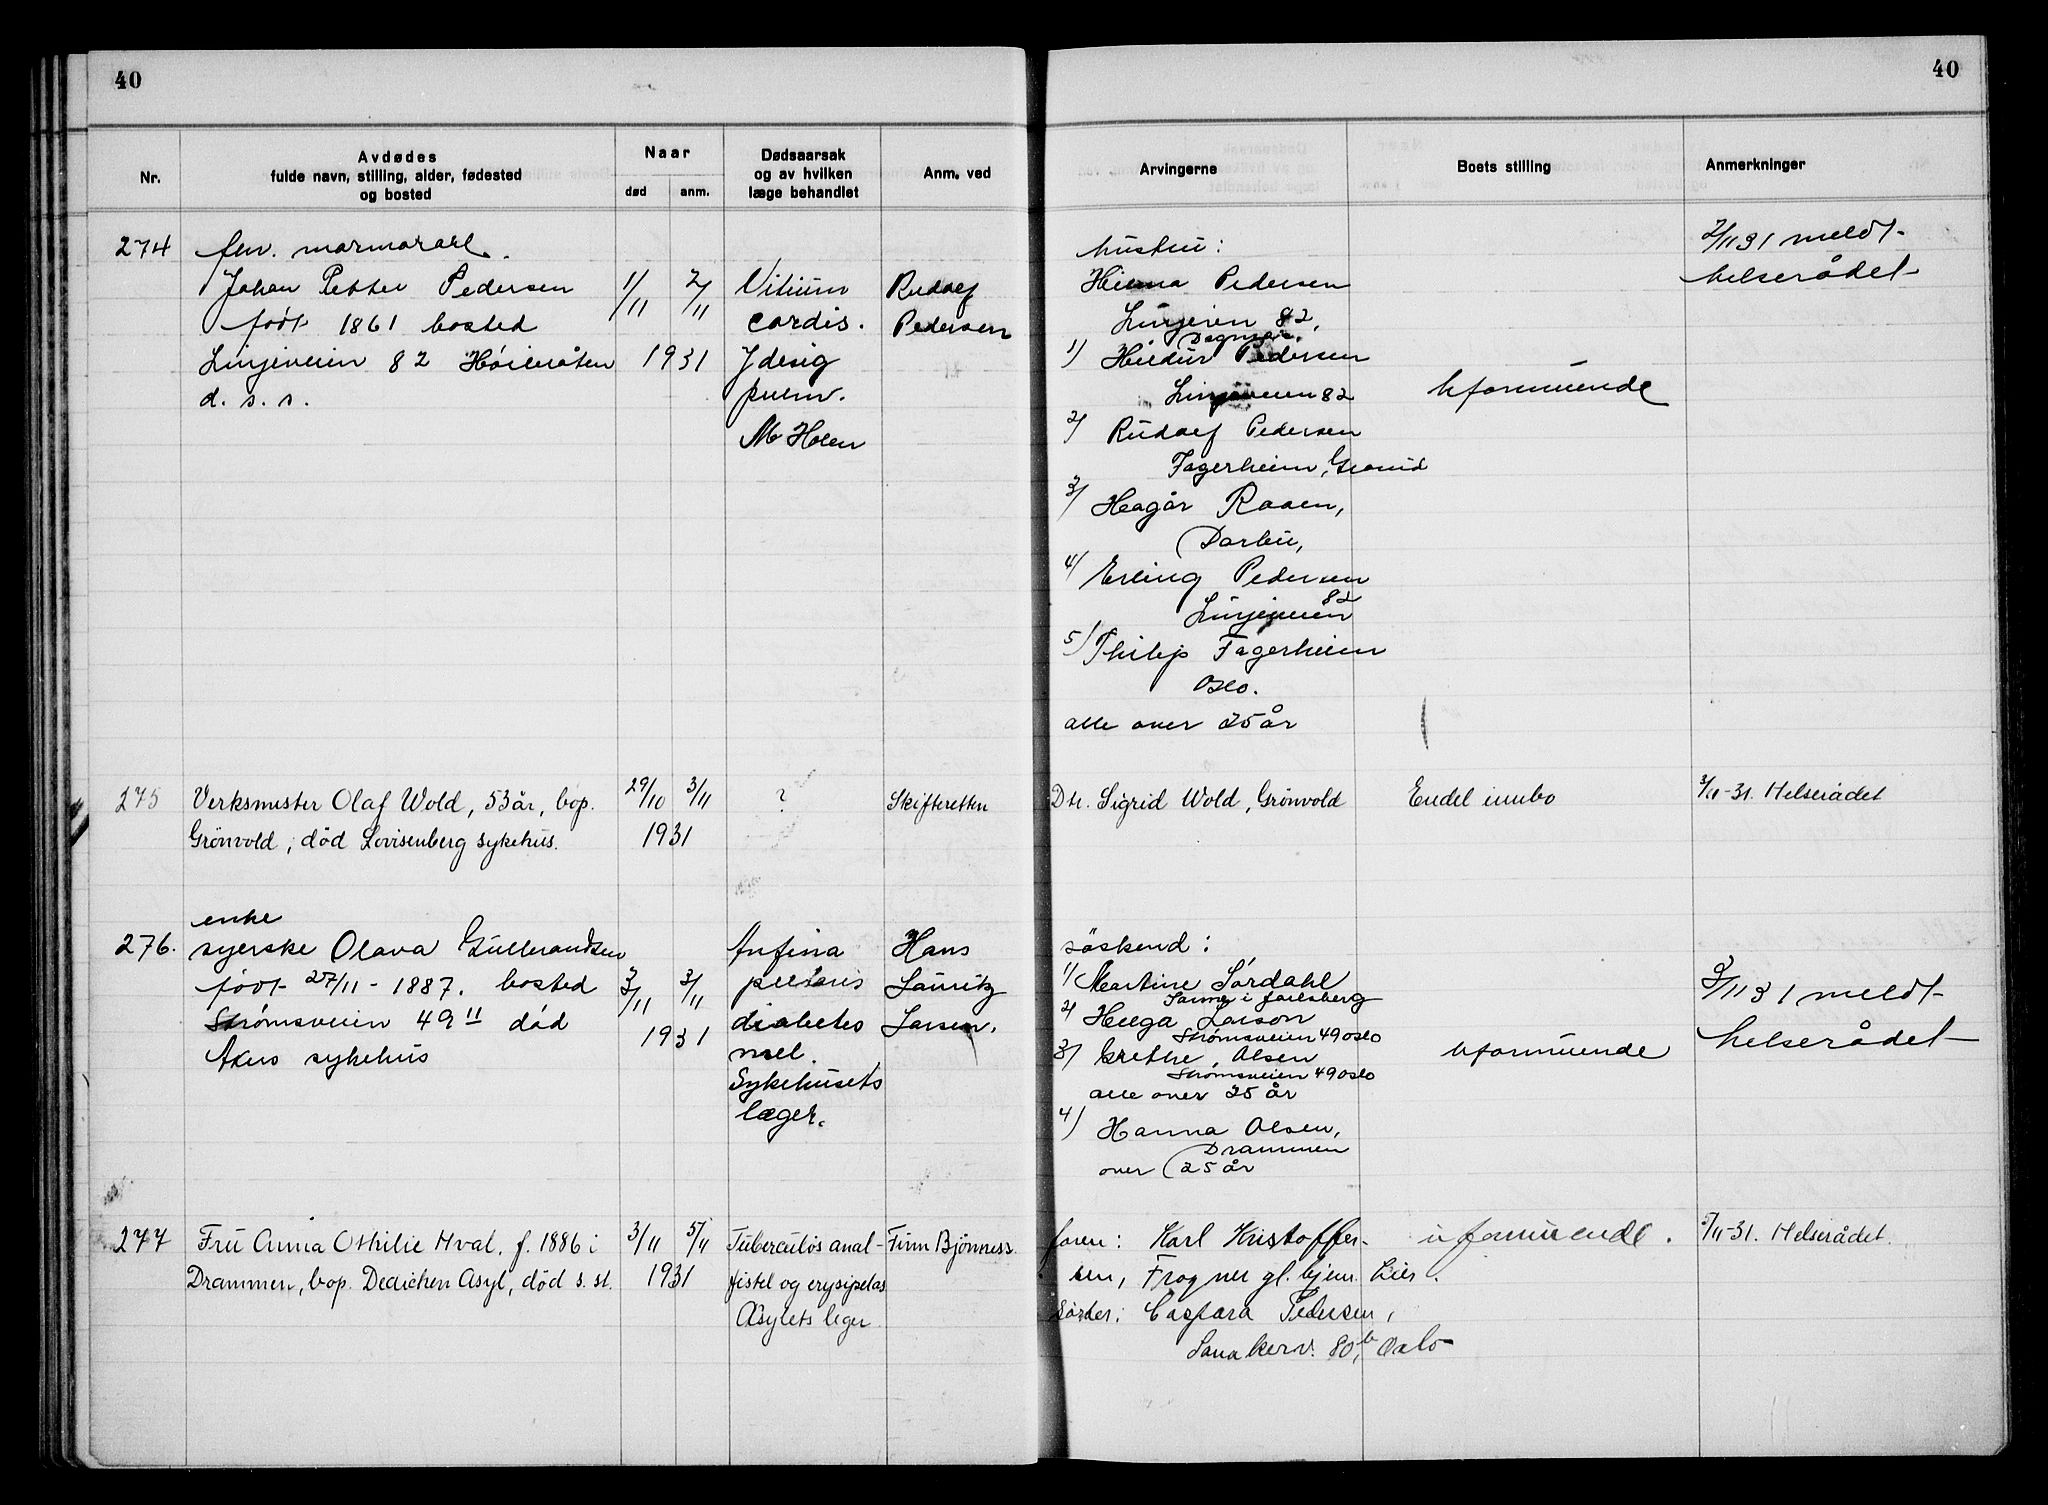 40
40
Nr.
Avdødes
fulde navn, stilling, alder, fødested
og bosted
Naar
død
anm.
Dødsaarsak
og av hvilken
læge behandlet
Anm. ved
Arvingerne
Boets stilling
Anmerkninger
274
fhv. marmorarb.
Johan Petter Pedersen
født 1861 bosted
Linjeveien 82 Høibråten
d. s. s.
1/11 2/11
1931
Vitium
cordis.
pulm.
Holen
Rudolf
Pedersen
hustru:
Hilma Pedersen
Linjeveien 82,
Dagmar
1) Hildur Pedersen
Linjeveien 82
2) Rudolf Pedersen
Fagerheim, Grorud
3) Hagår Raaen,
Darbu,
4) Erling Pedersen
82
Linjeveien
5) Philip Fagerheim
Oslo.
alle over 25 år
Uformuende
2/11 31 meldt
helserådet
275
Verksmester Olaf Wold, 53 år, bop.
Grönvold, död Lovisenberg sykehus.
29/10 3/11
1931
?
Skifteretten
Dtr. Sigrid Wold, Grönvold
Endel innbo
3/11-31. Helserådet
276.
enke
syerske Olava Gulbrandsen
født 27/11 - 1887. bosted
Strømsveien 49 II død
Akers sykehus
3/11 3/11
1931
Anfina
pectoris
diabetes
mel.
Sykehusets
læger.
Hans
Lauritz
Larsen.
söskend:
1/ Martine Sørdahl
Sanne i Jarlsberg
2) Helga Larson
Strømsveien 49 Oslo
3) Grethe Olsen
Strømsveien 49 Oslo
alle over 25 år
4) Hanna Olsen,
Drammen
over 25 år
Uformuende
3/11 31 meldt
helserådet
277
Fru Anna Othilie Hval, f. 1886 i
Drammen, bop. Dedichen Asyl, död s. st.
3/11 5/11
1931
Tuberculös anal-
fistel og erysipelas
Asylets leger
Finn Bjönness
faren: Karl Kristoffer-
sen, Frogner gl. hjem. Lier.
Söster: Caspara Pedersen,
Sanakerv. 80 b, Oslo
uformuende.
5/11-31. Helserådet.